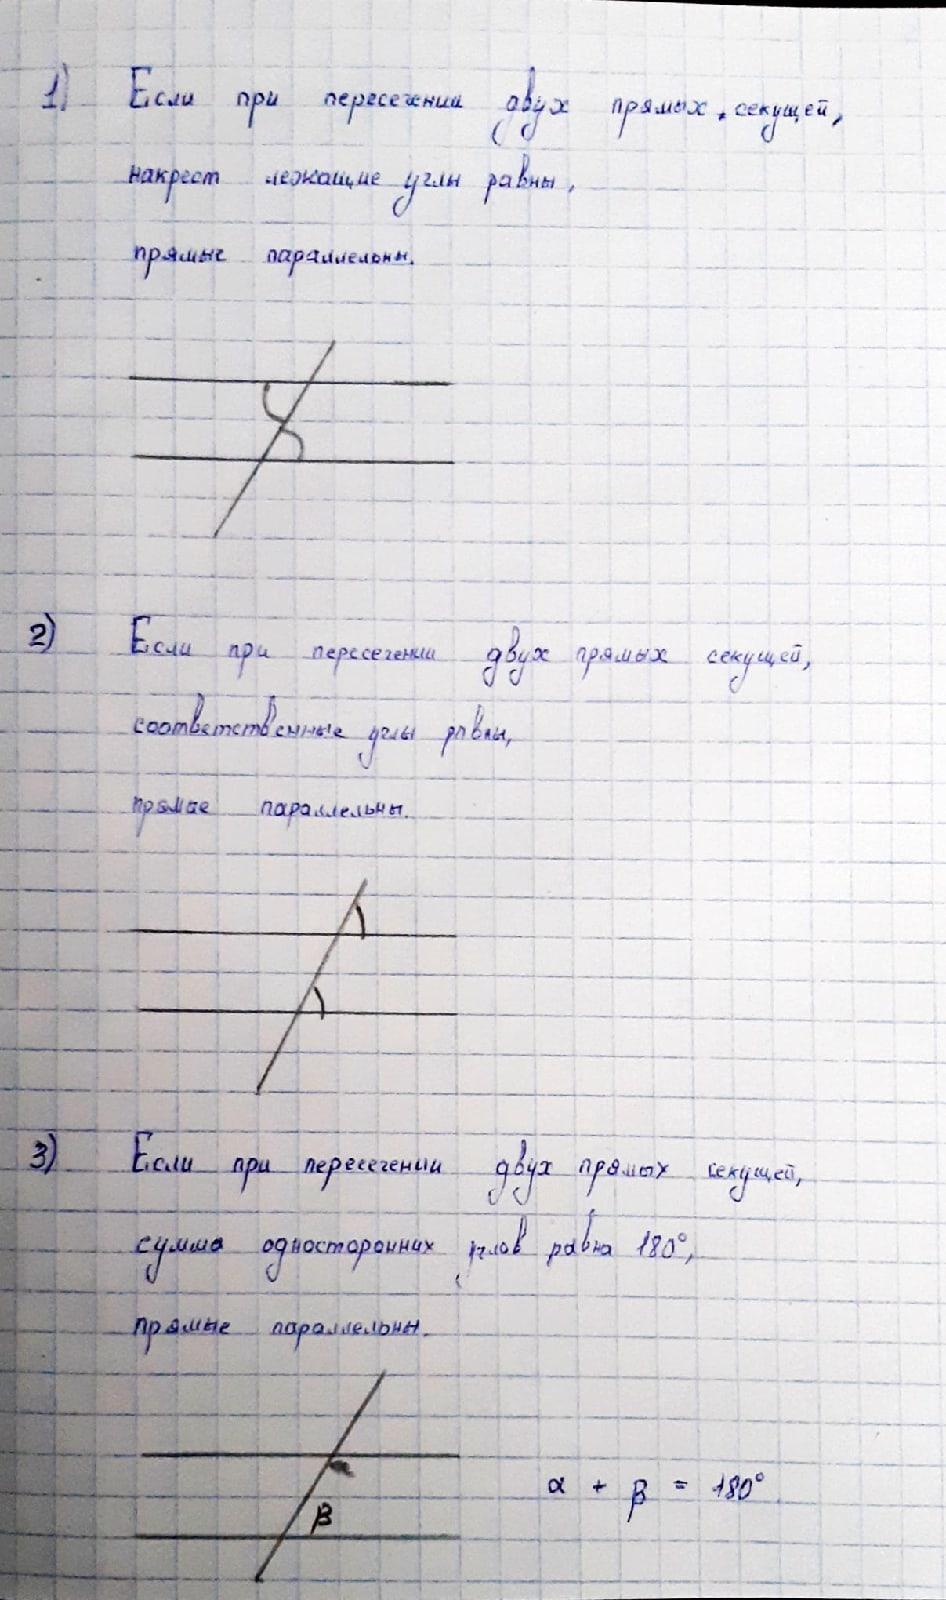 1) Если при пересечении двух прямых секущей,
накрест лежащие углы равны,
прямые параллельны.
2) Если при пересечении двух прямых секущей,
соответственные углы равны,
прямые параллельны.
3) Если при пересечении двух прямых секущей,
сумма односторонних углов равна 180°,
прямые параллельны.
α + β = 180°
β